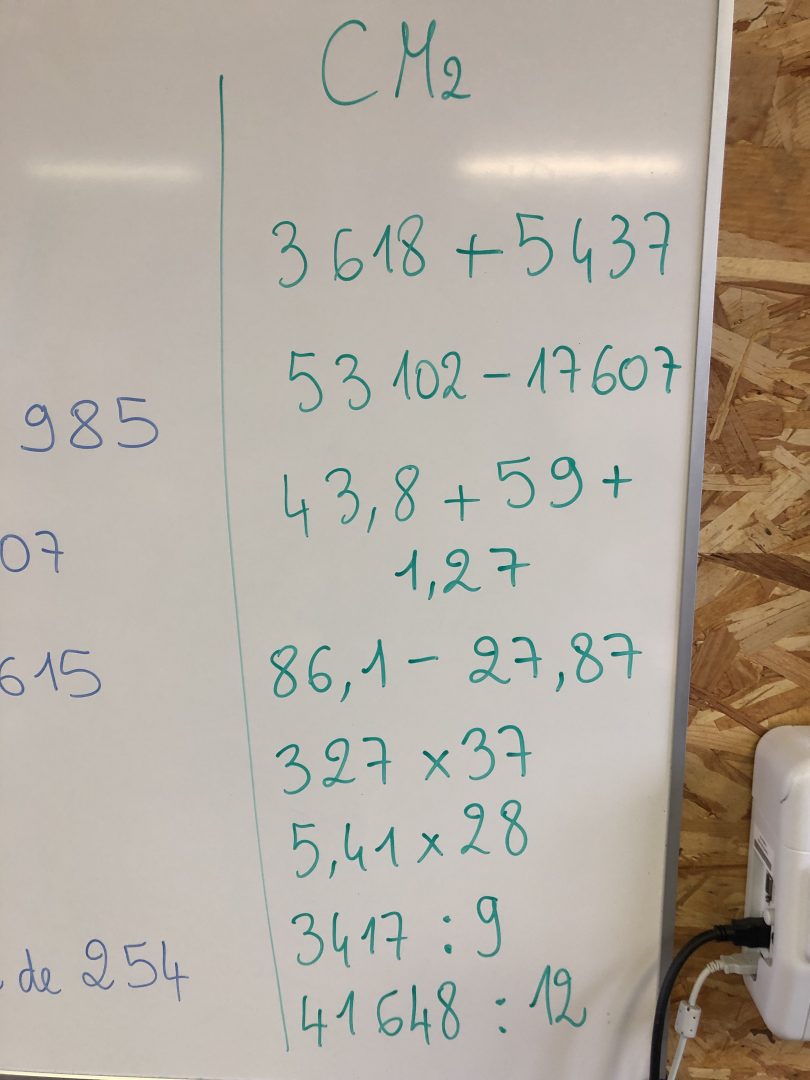 985
07
615
de 254
CM2
3 618 + 5 437
53 102 - 17 607
43,8 + 59 +
1,27
86,1 - 27,87
327 x 37
5,41 x 28
3417 : 9
41 648 : 12